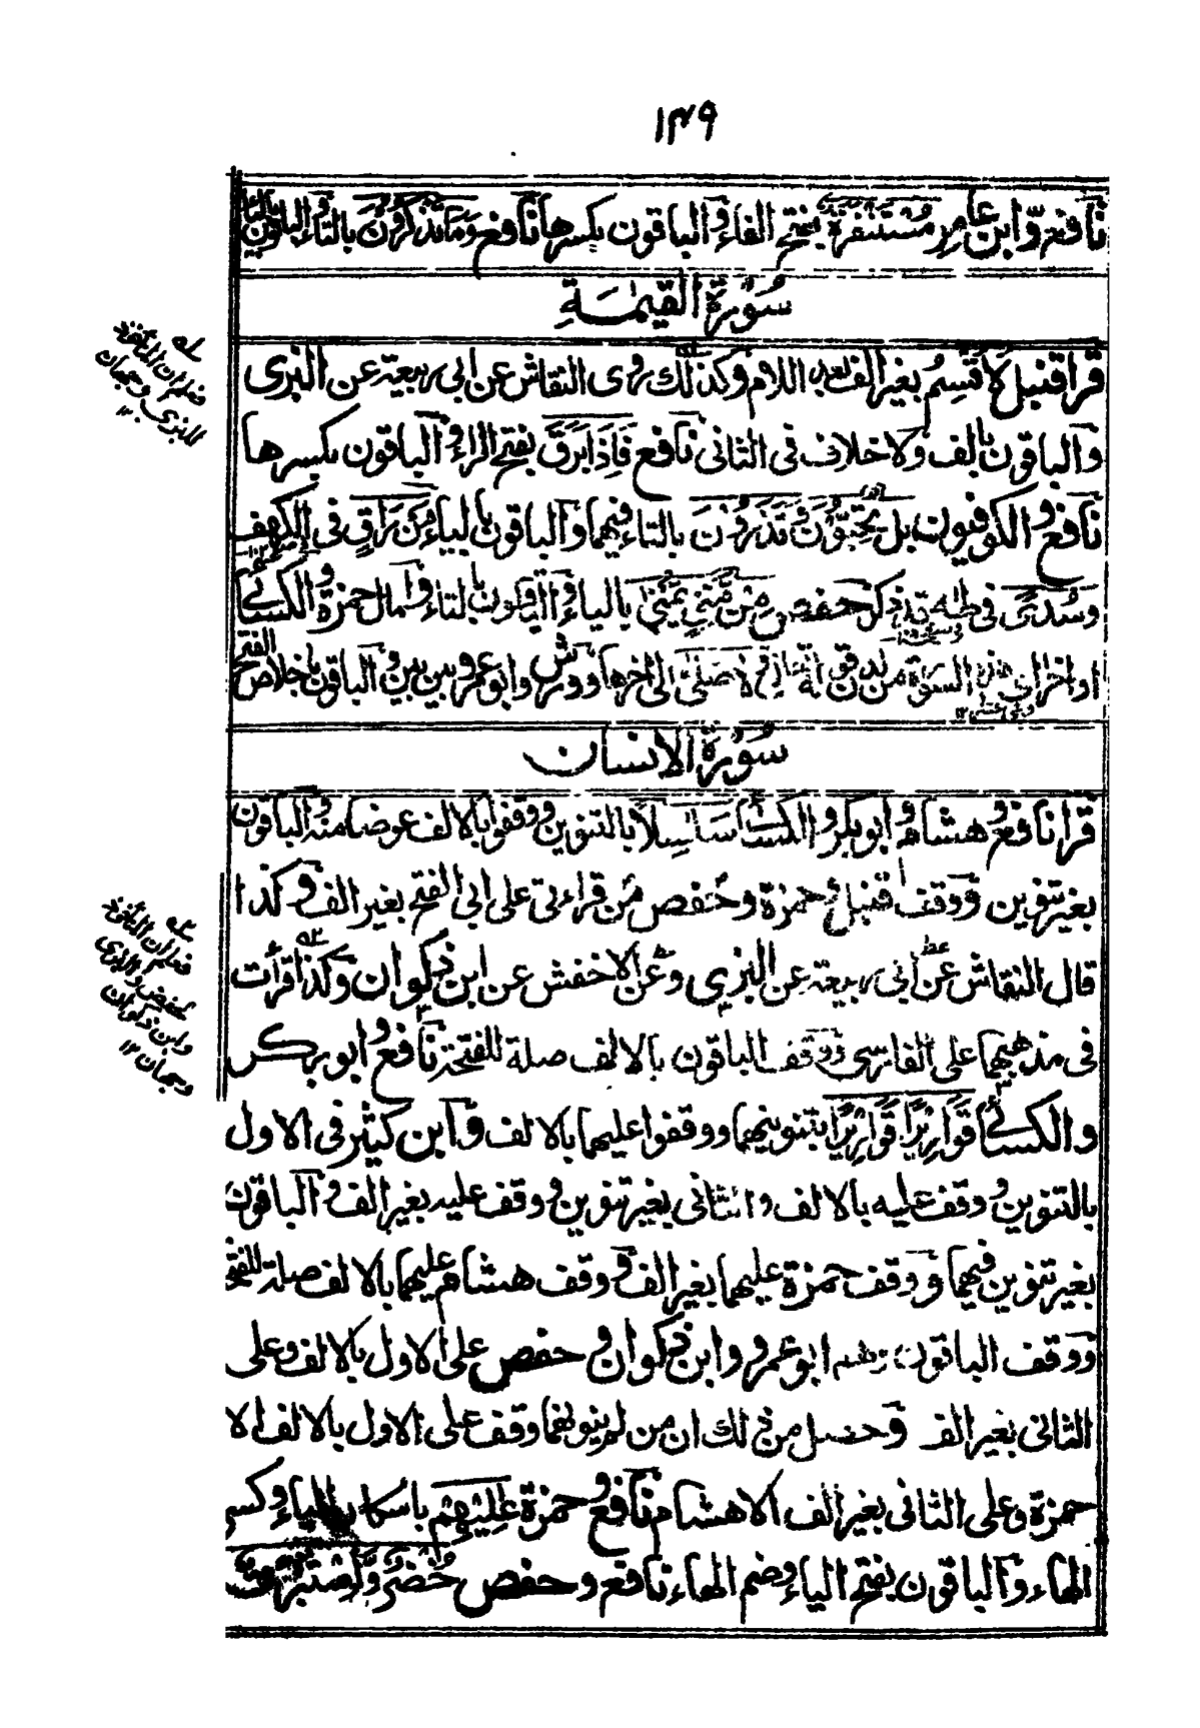 ١٣٩
نافع وابن عامر مُسْتَنْفَرَة بفتح الفاء والباقون بكسرها نافع وَمَا تَذْكُرُونَ بالتاء والباقون بالياء
سُوْرَة القيٰمَةِ
قرا قنبل لَاُقْسِمُ بغير الف بعد اللام وكذلك روى النقاش عن ابى ربيعة عن البزى
والباقون بالف ولا خلاف فى الثانى نافع فَاِذَا بَرَقَ بفتح الراء والباقون بكسرها
نافع والكوفيون بل تُحِبُّوْنَ وَتَذَرُوْنَ بالتاء فيهما والباقون بالياء مَنْ رَاقٍ فى الكهف
وسُدًى فى طٰه قد ذكر حفص مِنْ مَّنِىٍّ يُّمْنٰى بالياء والباقون بالتاء وامال حمزة والكسائى
اواخر اى هذه السورة من لدن قوله تعالى فلا صَدَّقَ الى اخرها وورش وابو عمرو بين بين والباقون باخلاص الفتح
سُوْرَة الانسان
قرا نافع وهشام وابو بكر والكسائى سَلٰسِلاً بالتنوين ووقفوا بالالف عوضا منه والباقون
بغير تنوين ووقف قنبل وحمزة وحفص من قراءتى على ابى الفتح بغير الف وكذا
قال النقاش عن ابى ربيعة عن البزى وعن الاخفش عن ابن ذكوان وكذا قرأت
فى مذهبهما على الفارسى ووقف الباقون بالالف صلة للفتحة نافع وابو بكر
والكسائى قَوَارِيْرًا قَوَارِيْرًا بتنوينهما ووقفوا عليهما بالالف وابن كثير فى الاول
بالتنوين ووقف عليه بالالف والثانى بغير تنوين ووقف عليه بغير الف والباقون
بغير تنوين فيهما ووقف حمزة عليهما بغير الف ووقف هشام عليهما بالالف صلة للفتحة
ووقف الباقون وهم ابو عمرو وابن ذكوان وحفص على الاول بالالف وعلى
الثانى بغير الف وحصل من ذلك ان من لم ينونهما وقف على الاول بالالف الا
حمزة وعلى الثانى بغير الف الا هشام نافع وحمزة عٰلِيْهِمْ باسكان الياء وكسر
الهاء والباقون بفتح الياء وضم الهاء نافع وحفص خُضْرٌ وَّاِسْتَبْرَقٌ
فعلم ان المأخوذ
للبزى وجهان ١٢
فعلم ان المأخوذ
لحفص والبزى
وابن ذكوان
وجهان ١٢